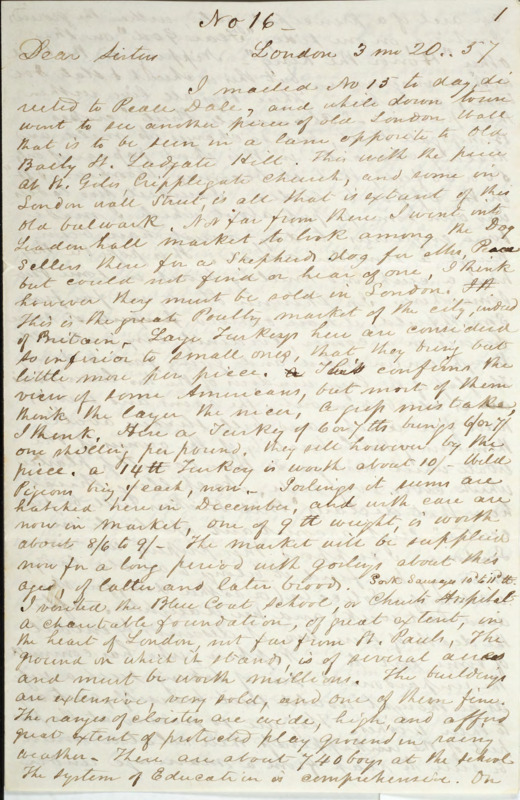 No 16 - 1
Dear Sisters London 3 mo 20.. 57
I mailed No 15 to day di
rected to Peace Dale, and while down town
went to see another piece of old London Wall
that is to be seen in a lane opposite to Old
Baily St. Ludgate Hill. This with the piece
at St. Giles Cripplegate Church, and some in
London wall Street, is all that is extant of this
old bulwark. Not far from there I went into
Leadenhall market to look among the Dog
Sellers there for a Shepherds dog for Mrs. Pease
but could not find or hear of one, I think
however they must be sold in London.
This is the great Poultry market of the city, indeed
of Britain. Large Turkeys here are considered
so inferior to small ones, that they bring but
little more per piece. This confirms the
view of some Americans, but most of them
think the larger the nicer, a gross mistake,
I think. Here a Turkey of 6 or 7 lbs. brings 6/ or 7/
one shilling per pound. they sell however by the
piece. a 14 lb Turkey is worth about 10/- Wild
Pigeons bring 1/ each, now - Goslings it seems are
hatched here in December, and with care are
now in market, one of 9 lb weight, is worth
about 8/6 to 9/- The market will be supplied
now for a long period with goslings about this
age, of latter and later broods. Pork Sausages 10d to 1/ lb.
I visited the Blue Coat School, or Christs Hospital
a charitable foundation, of great extent, in
the heart of London, not far from St. Pauls, The
ground on which it stands, is of several acres
and must be worth millions. The buildings
are extensive, very solid, and one of them fine.
The ranges of cloister are wide, high, and afford
great extent of protected play ground in rainy
weather - There are about 740 boys at the school
The system of Education is comprehensive. On